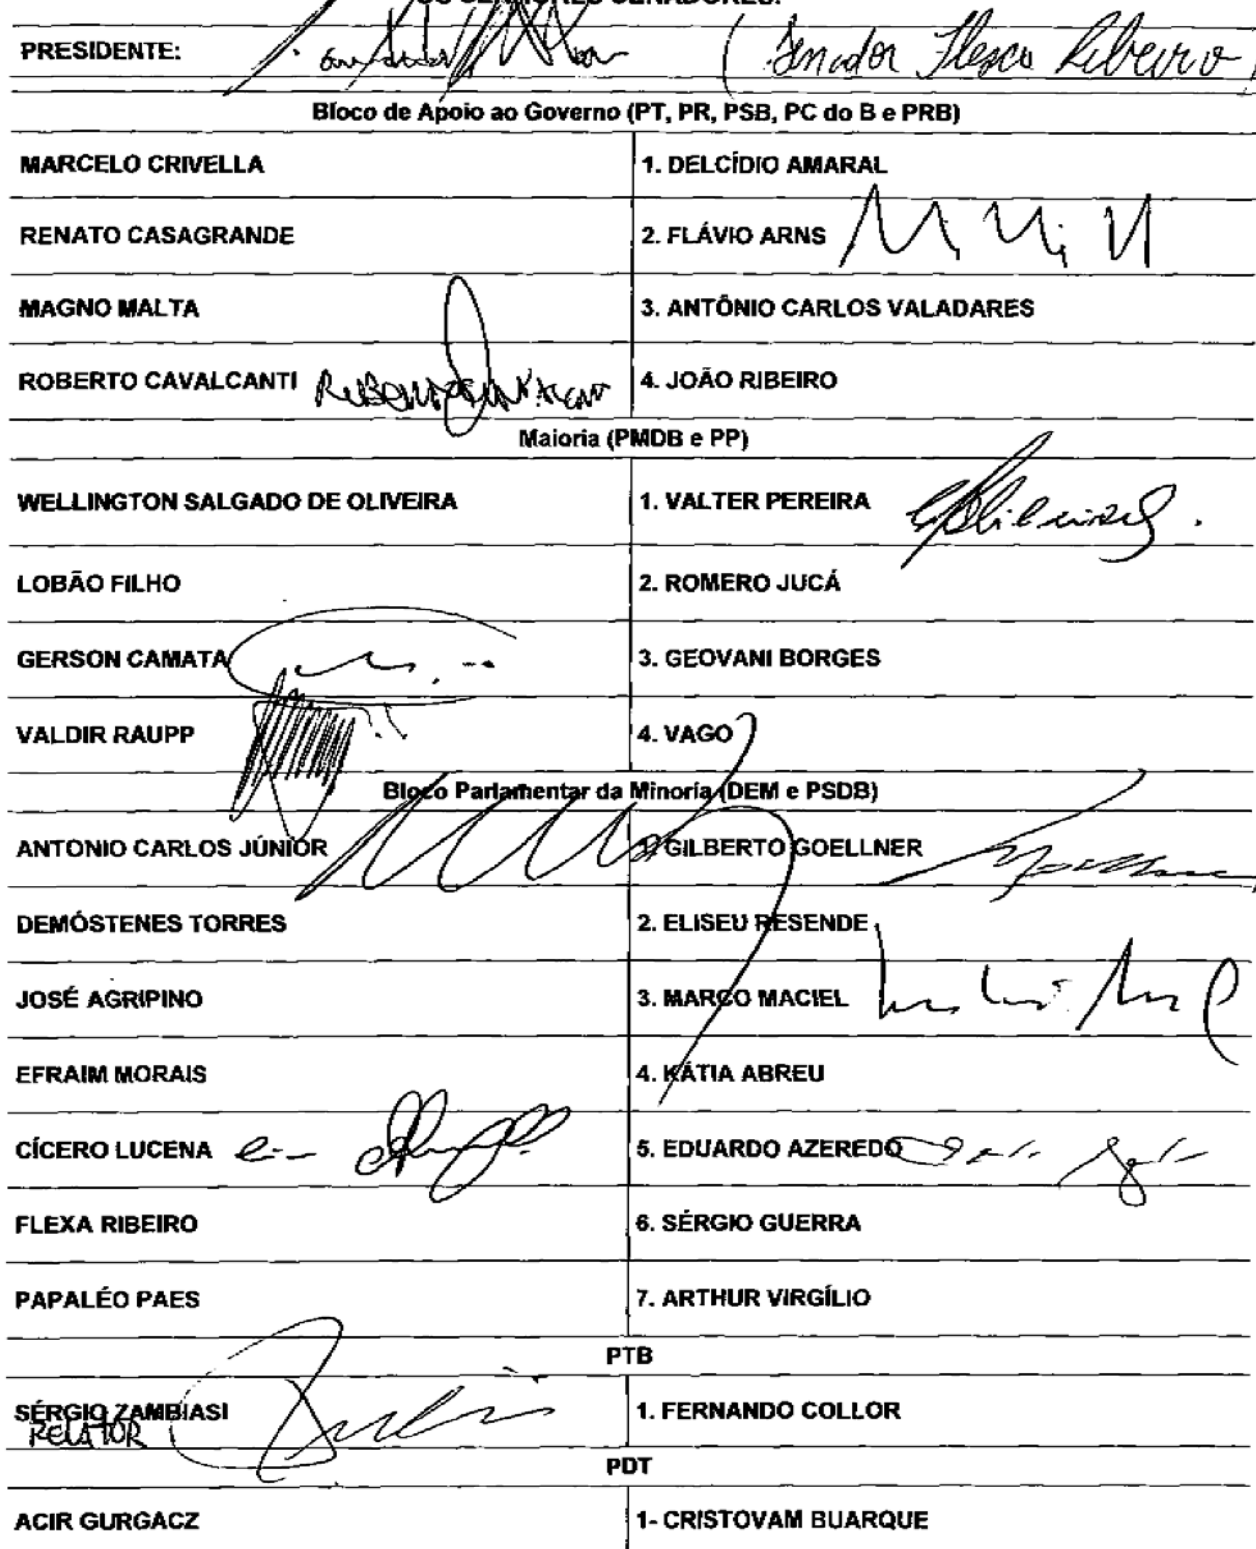 OS SENHORES SENADORES:
PRESIDENTE: (Senador Flexa Ribeiro)
Bloco de Apoio ao Governo (PT, PR, PSB, PC do B e PRB)
MARCELO CRIVELLA 1. DELCÍDIO AMARAL
RENATO CASAGRANDE 2. FLÁVIO ARNS
MAGNO MALTA 3. ANTÔNIO CARLOS VALADARES
ROBERTO CAVALCANTI 4. JOÃO RIBEIRO
Maioria (PMDB e PP)
WELLINGTON SALGADO DE OLIVEIRA 1. VALTER PEREIRA
LOBÃO FILHO 2. ROMERO JUCÁ
GERSON CAMATA 3. GEOVANI BORGES
VALDIR RAUPP 4. VAGO
Bloco Parlamentar da Minoria (DEM e PSDB)
ANTONIO CARLOS JÚNIOR 1. GILBERTO GOELLNER
DEMÓSTENES TORRES 2. ELISEU RESENDE
JOSÉ AGRIPINO 3. MARCO MACIEL
EFRAIM MORAIS 4. KÁTIA ABREU
CÍCERO LUCENA 5. EDUARDO AZEREDO
FLEXA RIBEIRO 6. SÉRGIO GUERRA
PAPALÉO PAES 7. ARTHUR VIRGÍLIO
PTB
SÉRGIO ZAMBIASI 1. FERNANDO COLLOR
RELATOR
PDT
ACIR GURGACZ 1- CRISTOVAM BUARQUE